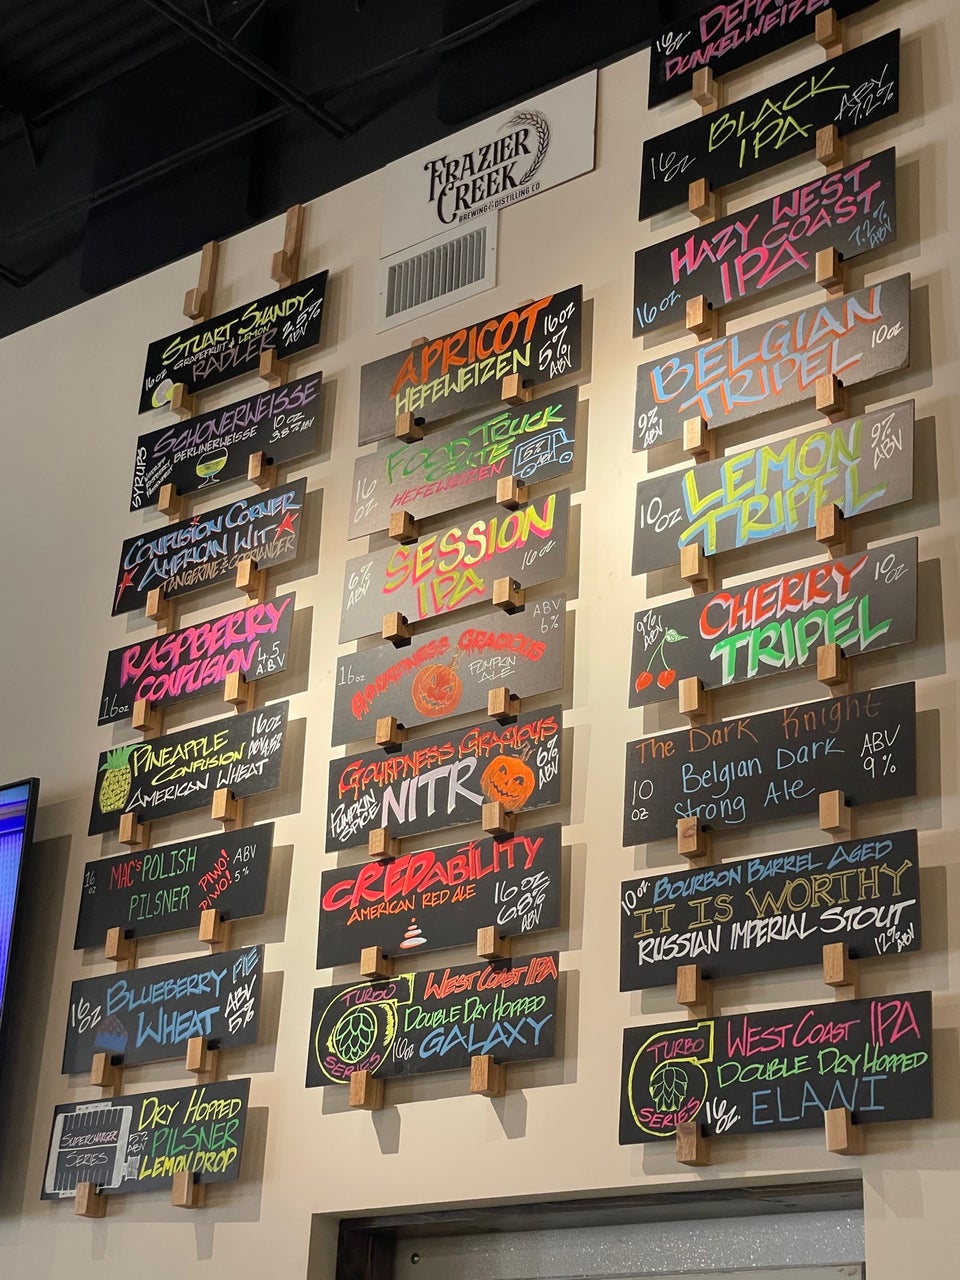 FRAZIER
CREEK
BREWING & DISTILLING CO
STUART SHANDY
GRAPEFRUIT & LEMON
RADLER
16 oz
2.5%
ABV
SCHONERWEISSE
BERLINERWEISSE
10 oz
3.8% ABV
SYRUPS
CONFUSION CORNER
AMERICAN WIT
TANGERINE & CORRIANDER
RASPBERRY
CONFUSION
16oz
4.5
A.B.V
PINEAPPLE
CONFUSION
AMERICAN WHEAT
16oz
MAC'S POLISH
PILSNER
16
oz
PIWO!
PIWO!
PIWO!
ABV
5%
BLUEBERRY PIE
WHEAT
16
oz
ABV
5%
SUPERCHARGER
SERIES
5%
ABV
DRY HOPPED
PILSNER
LEMON DROP
APRICOT
HEFEWEIZEN
16oz
5%
ABV
FOOD TRUCK
HEFEWEIZEN
16
oz
5%
ABV
SESSION
IPA
6%
ABV
16oz
GOURDNESS GRACIOUS
PUMPKIN
ALE
16oz
ABV
6%
GOURDNESS GRACIOUS
PUMPKIN
SPICE
NITRO
6%
ABV
CREDABILITY
AMERICAN RED ALE
16oz
6.8%
ABV
TURBO
SERIES
WEST COAST IPA
DOUBLE DRY HOPPED
16oz GALAXY
16oz
DUNKELWEIZEN
16oz
BLACK
IPA
ABV
7.2%
HAZY WEST
COAST
IPA
16oz
7.2%
ABV
BELGIAN
TRIPEL
9%
ABV
10oz
LEMON
TRIPEL
10oz
9%
ABV
CHERRY
TRIPEL
9%
ABV
10oz
The Dark Knight
Belgian Dark
Strong Ale
10
oz
ABV
9%
10oz BOURBON BARREL AGED
IT IS WORTHY
RUSSIAN IMPERIAL STOUT
12%
ABV
TURBO
SERIES
WEST COAST IPA
DOUBLE DRY HOPPED
16oz. ELANI